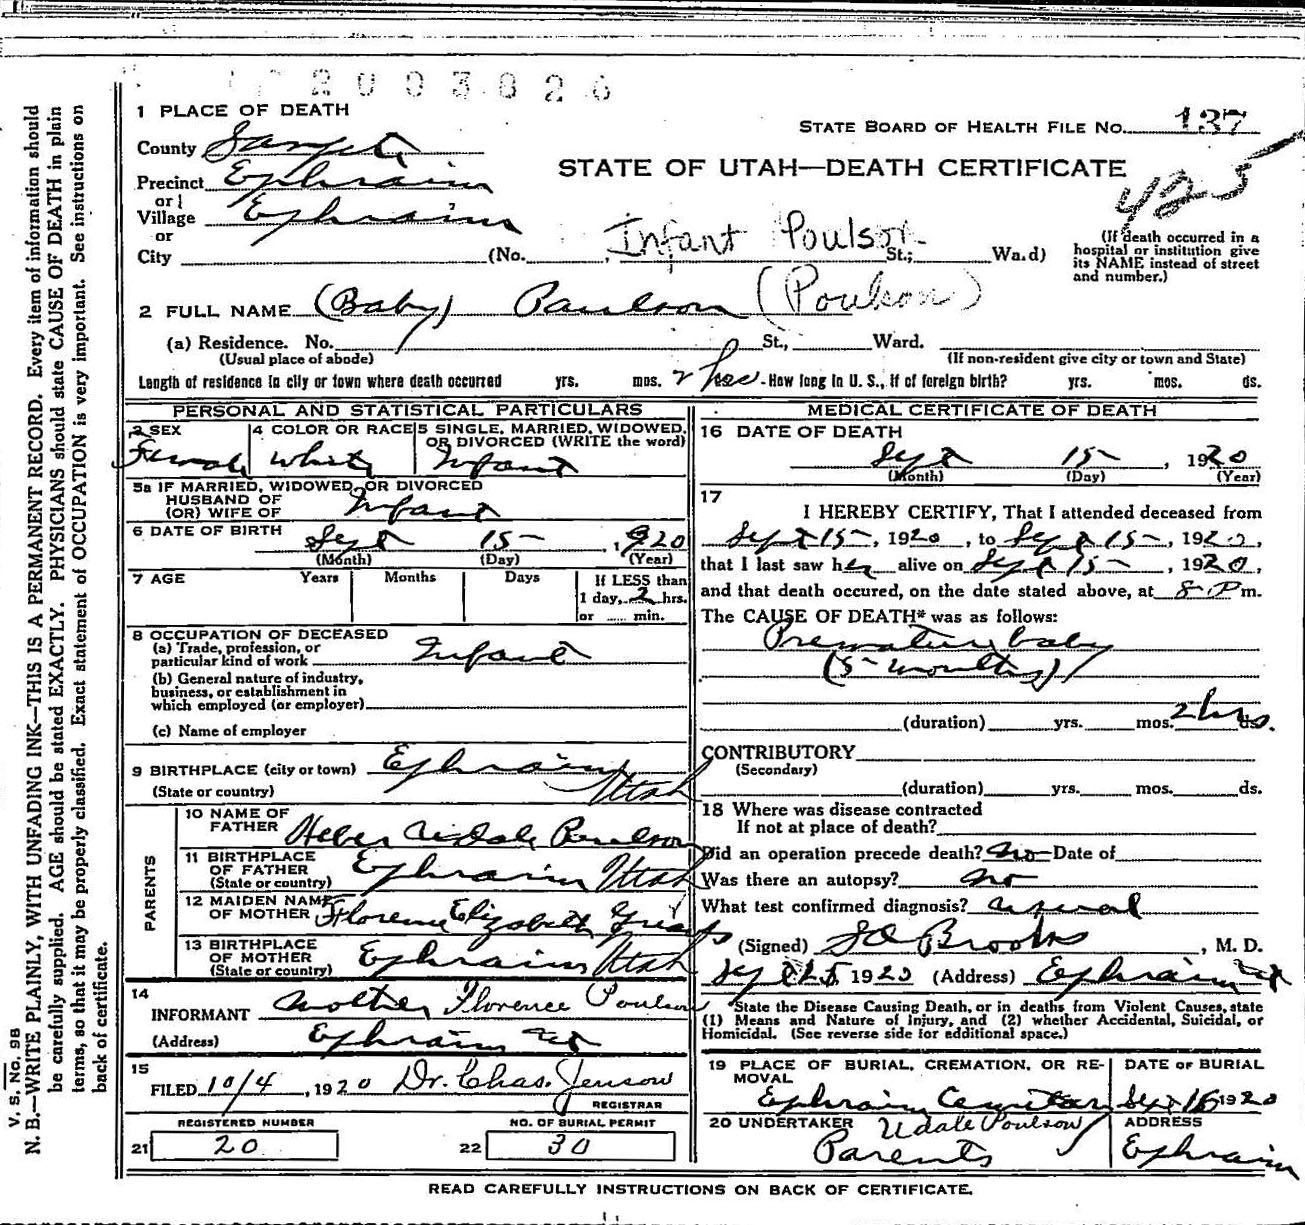 2003826
1 PLACE OF DEATH
STATE BOARD OF HEALTH FILE NO. 137
County Sanpete
STATE OF UTAH—DEATH CERTIFICATE
425
Precinct Ephraim
or
Village Ephraim
or
City (No. , Infant Poulson St.; Ward)
(If death occurred in a
hospital or institution give
its NAME instead of street
and number.)
2 FULL NAME (Baby) Paulson (Poulson)
(a) Residence. No. St., Ward.
(Usual place of abode) (If non-resident give city or town and State)
Length of residence in city or town where death occurred yrs. mos. 2 hrs. How long in U. S., if of foreign birth? yrs. mos. ds.
PERSONAL AND STATISTICAL PARTICULARS
3 SEX
Female
4 COLOR OR RACE
White
5 SINGLE, MARRIED, WIDOWED,
OR DIVORCED (WRITE the word)
Infant
5a IF MARRIED, WIDOWED, OR DIVORCED
HUSBAND OF
(OR) WIFE OF Infant
6 DATE OF BIRTH Sept 15 , 1920
(Month) (Day) (Year)
7 AGE Years Months Days If LESS than
1 day, 2 hrs.
or ...... min.
8 OCCUPATION OF DECEASED
(a) Trade, profession, or
particular kind of work Infant
(b) General nature of industry,
business, or establishment in
which employed (or employer)
(c) Name of employer
9 BIRTHPLACE (city or town) Ephraim
(State or country) Utah
PARENTS
10 NAME OF
FATHER Heber Udale Poulson
11 BIRTHPLACE
OF FATHER Ephraim Utah
(State or country)
12 MAIDEN NAME
OF MOTHER Florence Elizabeth
13 BIRTHPLACE
OF MOTHER Ephraim Utah
(State or country)
14
INFORMANT Mother Florence Poulson
(Address) Ephraim Ut
15
FILED 10/4 , 1920 Dr. Chas. Jenson
REGISTRAR
REGISTERED NUMBER
21 20
NO. OF BURIAL PERMIT
22 30
MEDICAL CERTIFICATE OF DEATH
16 DATE OF DEATH
Sept 15 , 1920
(Month) (Day) (Year)
17
I HEREBY CERTIFY, That I attended deceased from
Sept 15 , 1920 , to Sept 15 , 1920,
that I last saw her alive on Sept 15 , 1920,
and that death occured, on the date stated above, at 8 P m.
The CAUSE OF DEATH* was as follows:
Premature baby
(5 months)
(duration) yrs. mos. 2 hrs ds.
CONTRIBUTORY
(Secondary)
(duration) yrs. mos. ds.
18 Where was disease contracted
If not at place of death?
Did an operation precede death? no Date of
Was there an autopsy? no
What test confirmed diagnosis? usual
(Signed) Brooks , M. D.
Sept 1920 (Address) Ephraim Ut
*State the Disease Causing Death, or in deaths from Violent Causes, state
(1) Means and Nature of Injury, and (2) whether Accidental, Suicidal, or
Homicidal. (See reverse side for additional space.)
19 PLACE OF BURIAL, CREMATION, OR RE-
MOVAL
Ephraim Cemetery
DATE OF BURIAL
Sept 16 1920
20 UNDERTAKER Udale Poulson
Parents
ADDRESS
Ephraim
READ CAREFULLY INSTRUCTIONS ON BACK OF CERTIFICATE.
V. S. No. 98
N. B.—WRITE PLAINLY, WITH UNFADING INK—THIS IS A PERMANENT RECORD. Every item of information should
be carefully supplied. AGE should be stated EXACTLY. PHYSICIANS should state CAUSE OF DEATH in plain
terms, so that it may be properly classified. Exact statement of OCCUPATION is very important. See instructions on
back of certificate.